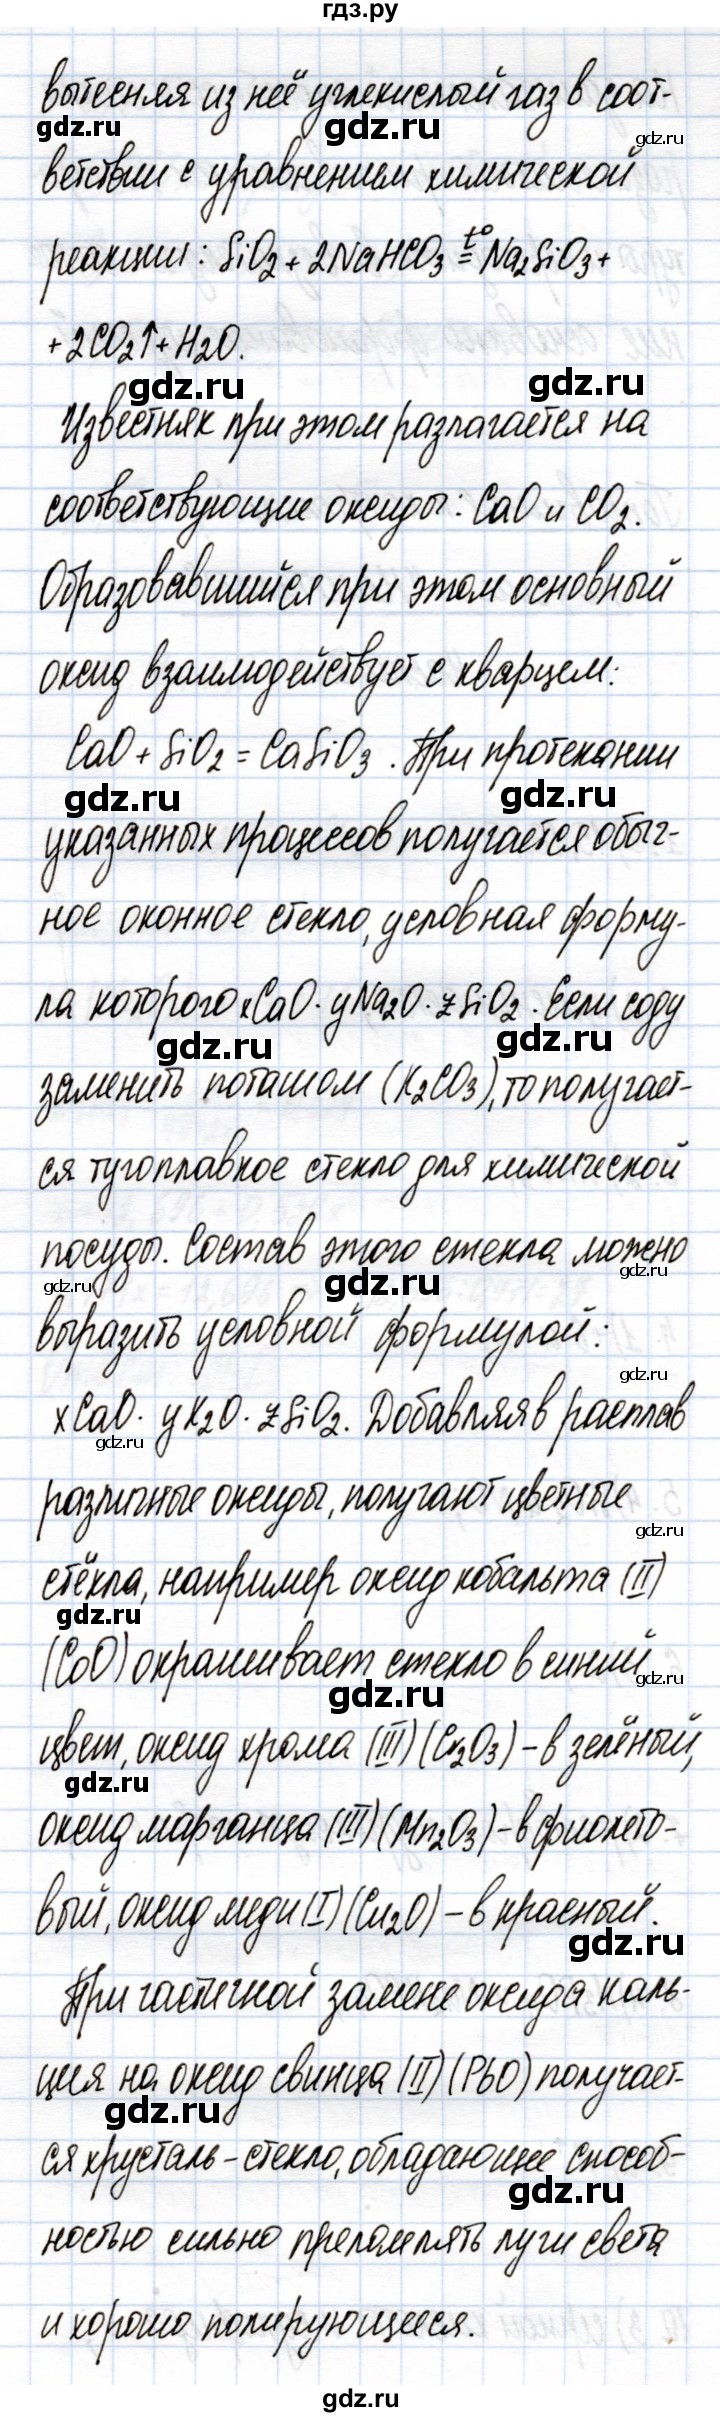 гдз.ру
вытесняя из неё углекислый газ в соот-
gdz.ru gdz.ru gdz.ru
ветствии с уравнением химической
реакции: SiO2 + 2NaHCO3 t° = Na2SiO3 +
+ 2CO2↑ + H2O.
gdz.ru gdz.ru
Известняк при этом разлагается на
соответствующие оксиды: CaO и CO2.
Образовавшийся при этом основный
оксид взаимодействует с кварцем:
CaO + SiO2 = CaSiO3. При протекании
gdz.ru gdz.ru
указанных процессов получается обыч-
ное оконное стекло, условная форму-
ла которого xCaO · yNa2O · zSiO2. Если соду
gdz.ru gdz.ru
заменить поташом (K2CO3), то получает-
ся тугоплавкое стекло для химической
посуды. Состав этого стекла можно
gdz.ru gdz.ru gdz.ru
выразить условной формулой:
gdz.ru
xCaO · yK2O · zSiO2. Добавляя в расплав
gdz.ru
различные оксиды, получают цветные
gdz.ru
стёкла, например оксид кобальта (II)
gdz.ru
(CoO) окрашивает стекло в синий
gdz.ru gdz.ru
цвет, оксид хрома (III) (Cr2O3) – в зелёный,
gdz.ru
оксид марганца (III) (Mn2O3) – в фиолето-
вый, оксид меди (I) (Cu2O) – в красный.
gdz.ru
При частичной замене оксида каль-
ция на оксид свинца (II) (PbO) получает-
gdz.ru
ся хрусталь – стекло, обладающее способ-
gdz.ru
ностью сильно преломлять лучи света
и хорошо полирующееся.
gdz.ru